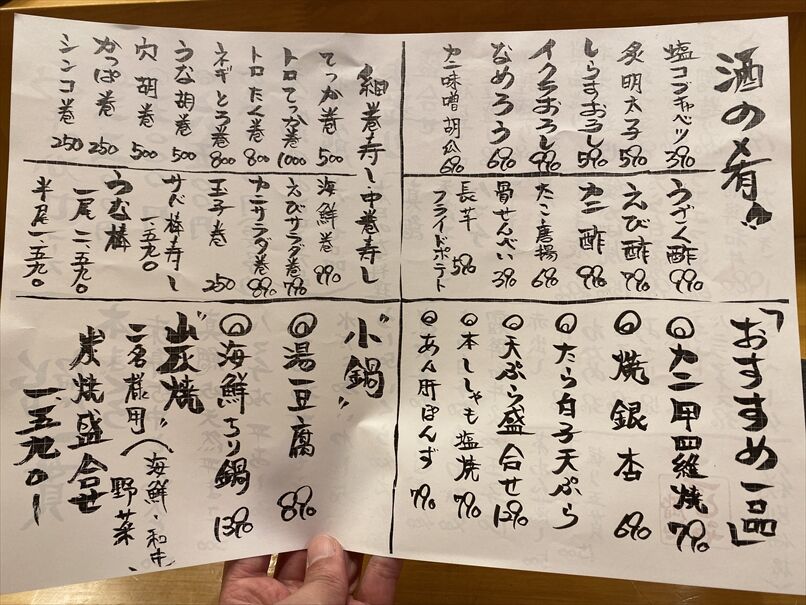 酒の肴
塩コブキャベツ 390
炙明太子 590
しらすおろし 590
イクラおろし 990
なめろう 690
カニ味噌胡瓜 690
うざく酢 990
えび酢 790
カニ酢 990
たこ唐揚 690
骨せんべい 390
長芋フライドポテト 590
細巻寿し・中巻寿し
てっか巻 500
トロてっか巻 1000
トロたく巻 800
ネギとろ巻 800
うな胡巻 500
穴胡巻 500
かっぱ巻 250
シンコ巻 250
海鮮巻 990
えびサラダ巻 790
カニサラダ巻 890
玉子巻 250
サバ棒寿し 一、五九〇
うなむ棒
一尾 二、五九〇
半尾 一、五九〇
「おすすめ一品」
カニ甲四維焼 790
焼銀杏 690
たら白子天ぷら
天ぷら盛合せ 1290
本ししゃも塩焼 790
あん肝ぽんず 790
"小鍋"
湯豆腐 890
海鮮ちり鍋 1390
"山灰焼"
二名様用(海鮮・和牛、野菜
炭焼盛合せ
一、五九〇ー